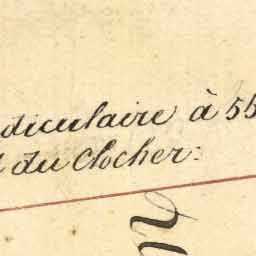 diculaire à 55
du Clocher: